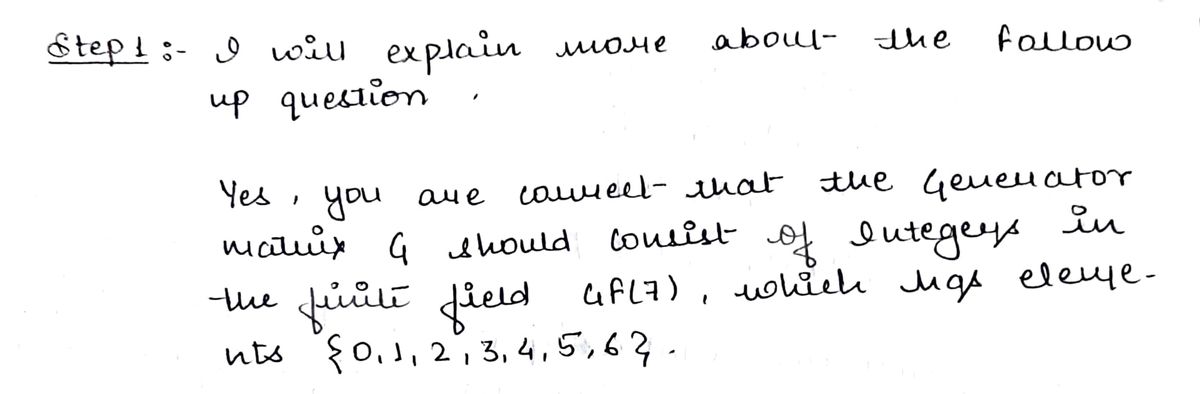 Step 1 :- I will explain more about the follow
up question .
Yes , you are correct that the Generator
matrix G should consist of Integers in
the finite field GF(7) , which has eleme-
nts {0, 1, 2, 3, 4, 5, 6} .